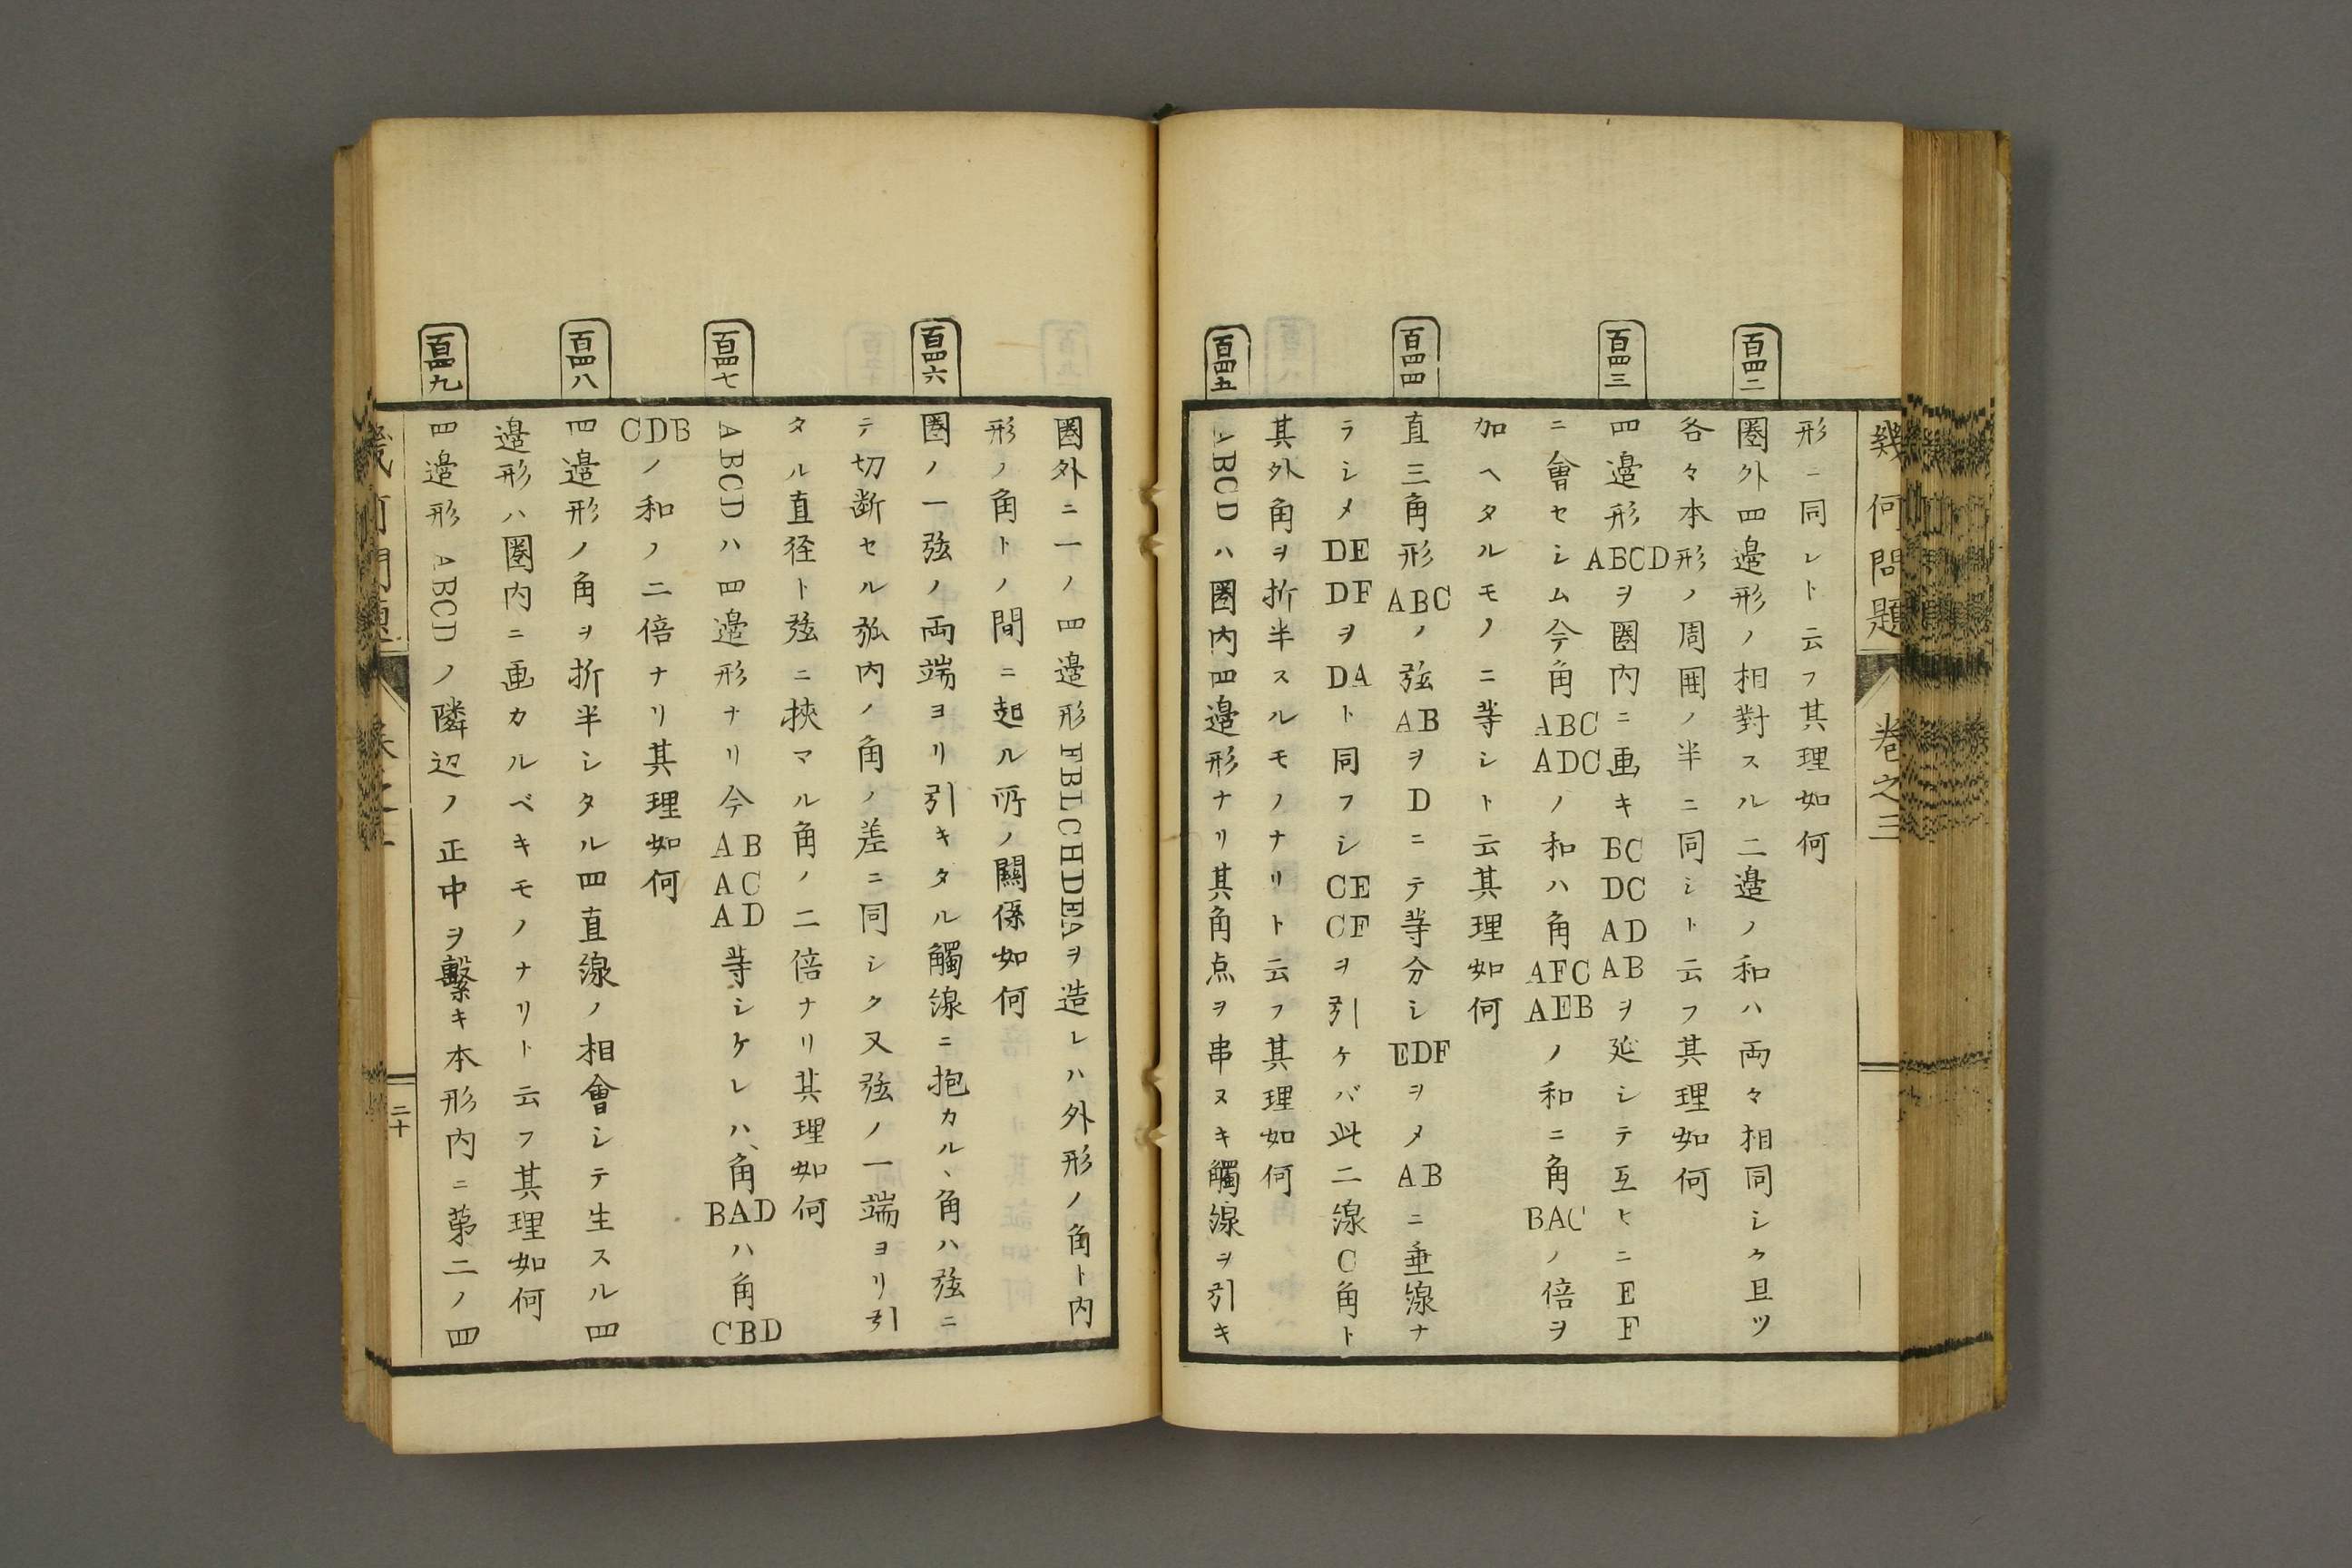 幾何問題 巻之三
形ニ同シト云フ其理如何
百四二
圏外四邉形ノ相對スル二邉ノ和ハ両々相同シク且ツ
各々本形ノ周囲ノ半ニ同シト云フ其理如何
百四三
四邉形ABCDヲ圏内ニ画キBC DC AD ABヲ延シテ互ヒニE F
ニ會セシム今角ABC ADCノ和ハ角AFC AEBノ和ニ角BACノ倍ヲ
加ヘタルモノニ等シト云其理如何
百四四
直三角形ABCノ弦ABヲDニテ等分シEDFヲメABニ垂線ナ
ラシメDE DFヲDAト同フシCE CFヲ引ケバ此二線C角ト
其外角ヲ折半スルモノナリト云フ其理如何
百四五
ABCDハ圏内四邉形ナリ其角点ヲ串ヌキ觸線ヲ引キ
圏外ニ一ノ四邉形FBLCHDEAヲ造レハ外形ノ角ト内
形ノ角トノ間ニ起ル所ノ關係如何
百四六
圏ノ一弦ノ両端ヨリ引キタル觸線ニ抱カルヽ角ハ弦ニ
テ切断セル弧内ノ角ノ差ニ同シク又弦ノ一端ヨリ引
タル直径ト弦ニ挾マル角ノ二倍ナリ其理如何
百四七
ABCDハ四邉形ナリ今AB AC AD等シケレハ、角BADハ角CBD
CDBノ和ノ二倍ナリ其理如何
百四八
四邉形ノ角ヲ折半シタル四直線ノ相會シテ生スル四
邉形ハ圏内ニ画カルベキモノナリト云フ其理如何
百四九
四邉形ABCDノ隣辺ノ正中ヲ繋キ本形内ニ第二ノ四
二十